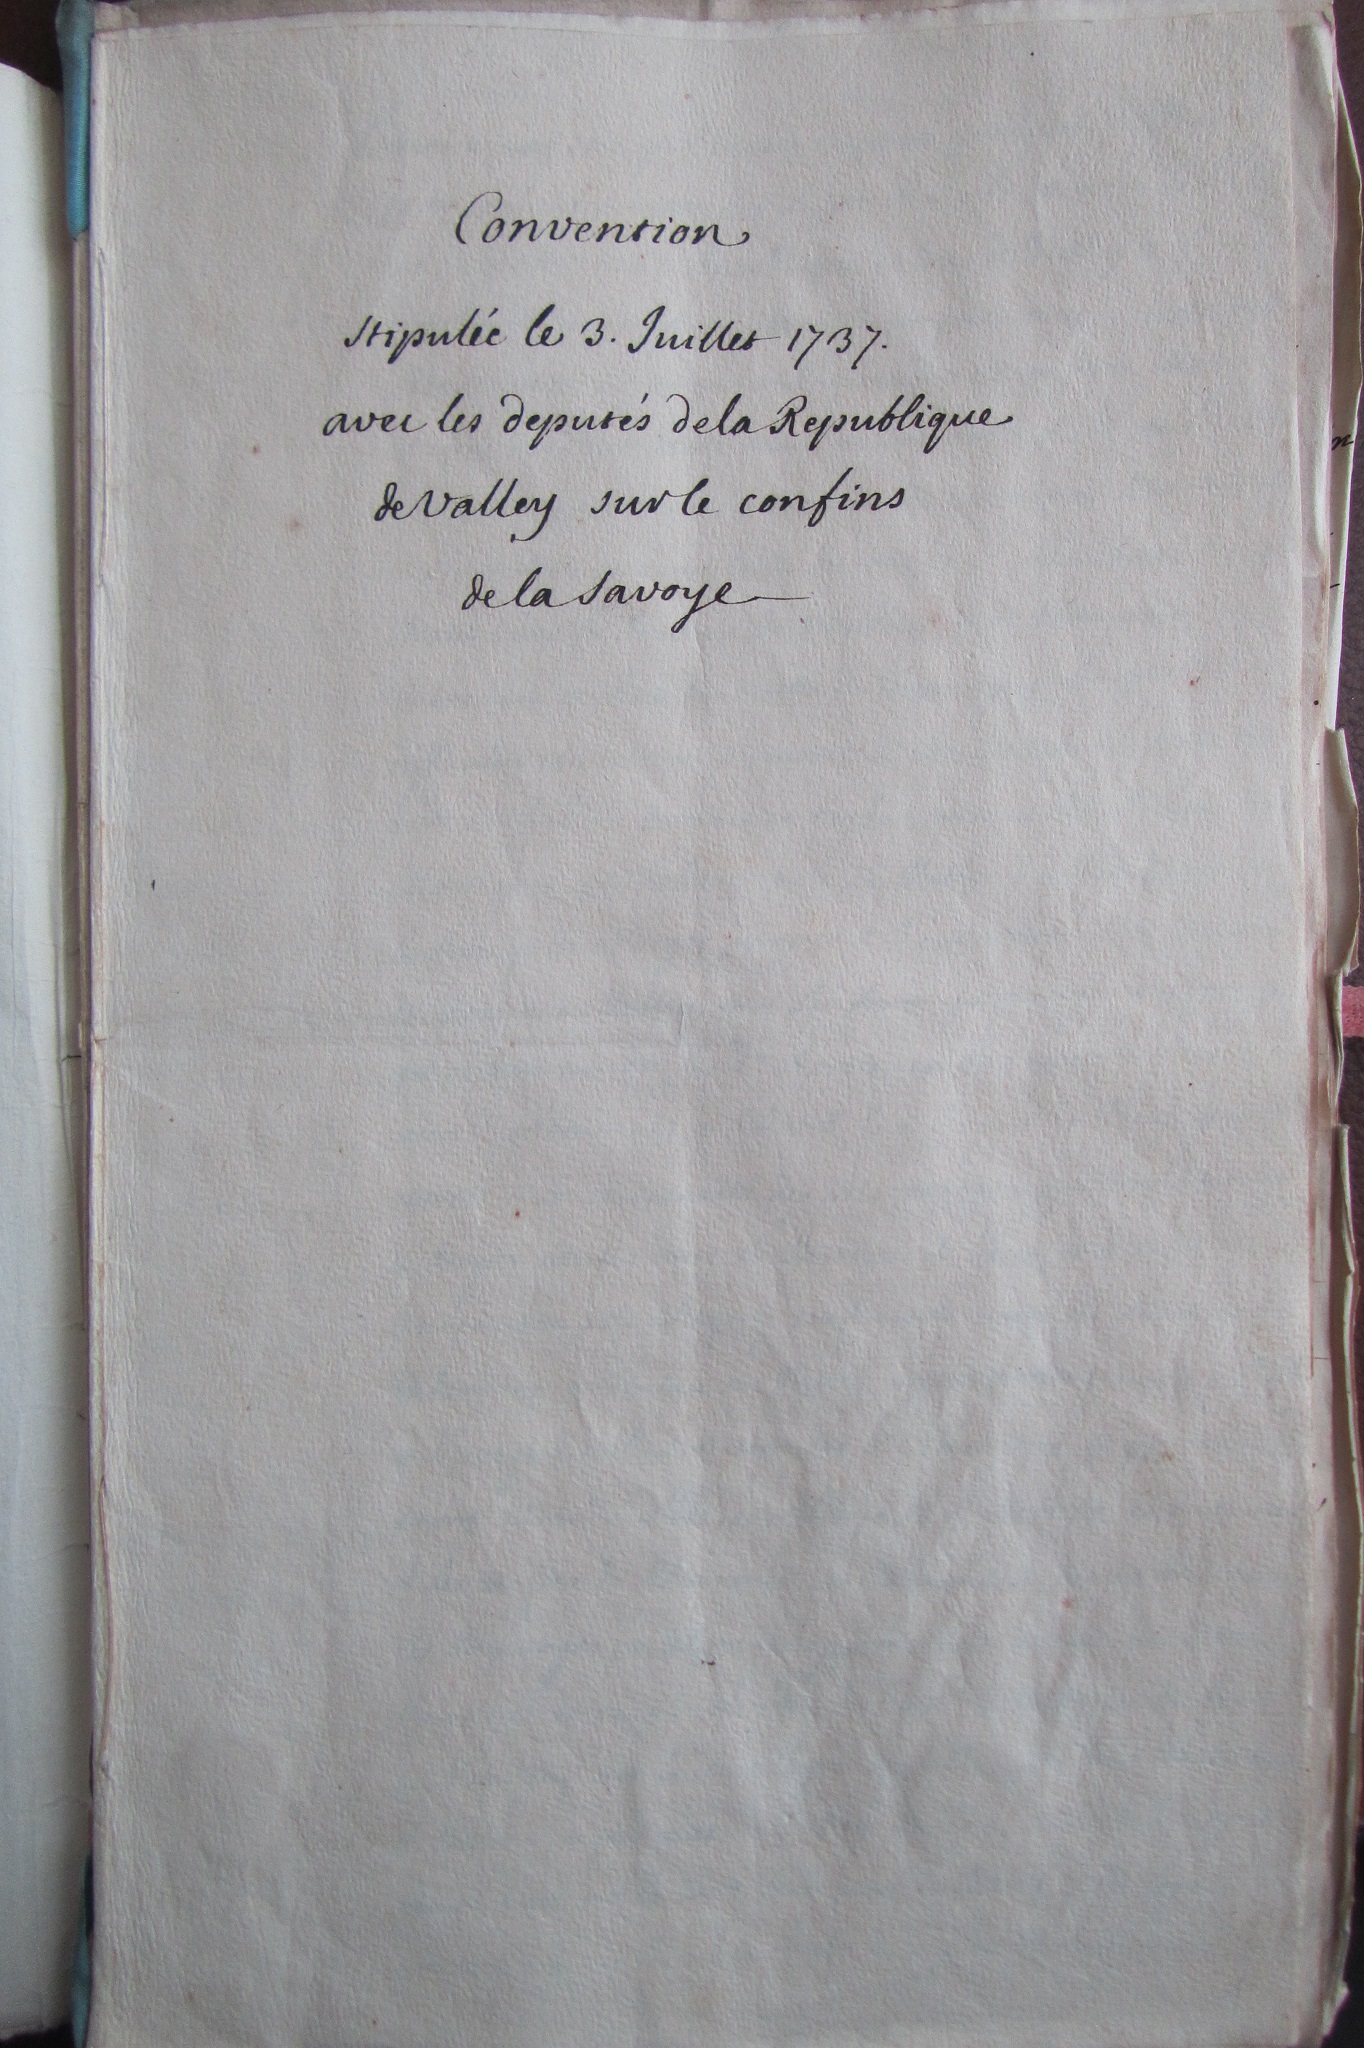 Convention
stipulée le 3. Juillet 1737.
avec les deputés de la Republique
de Valley sur le confins
de la Savoye